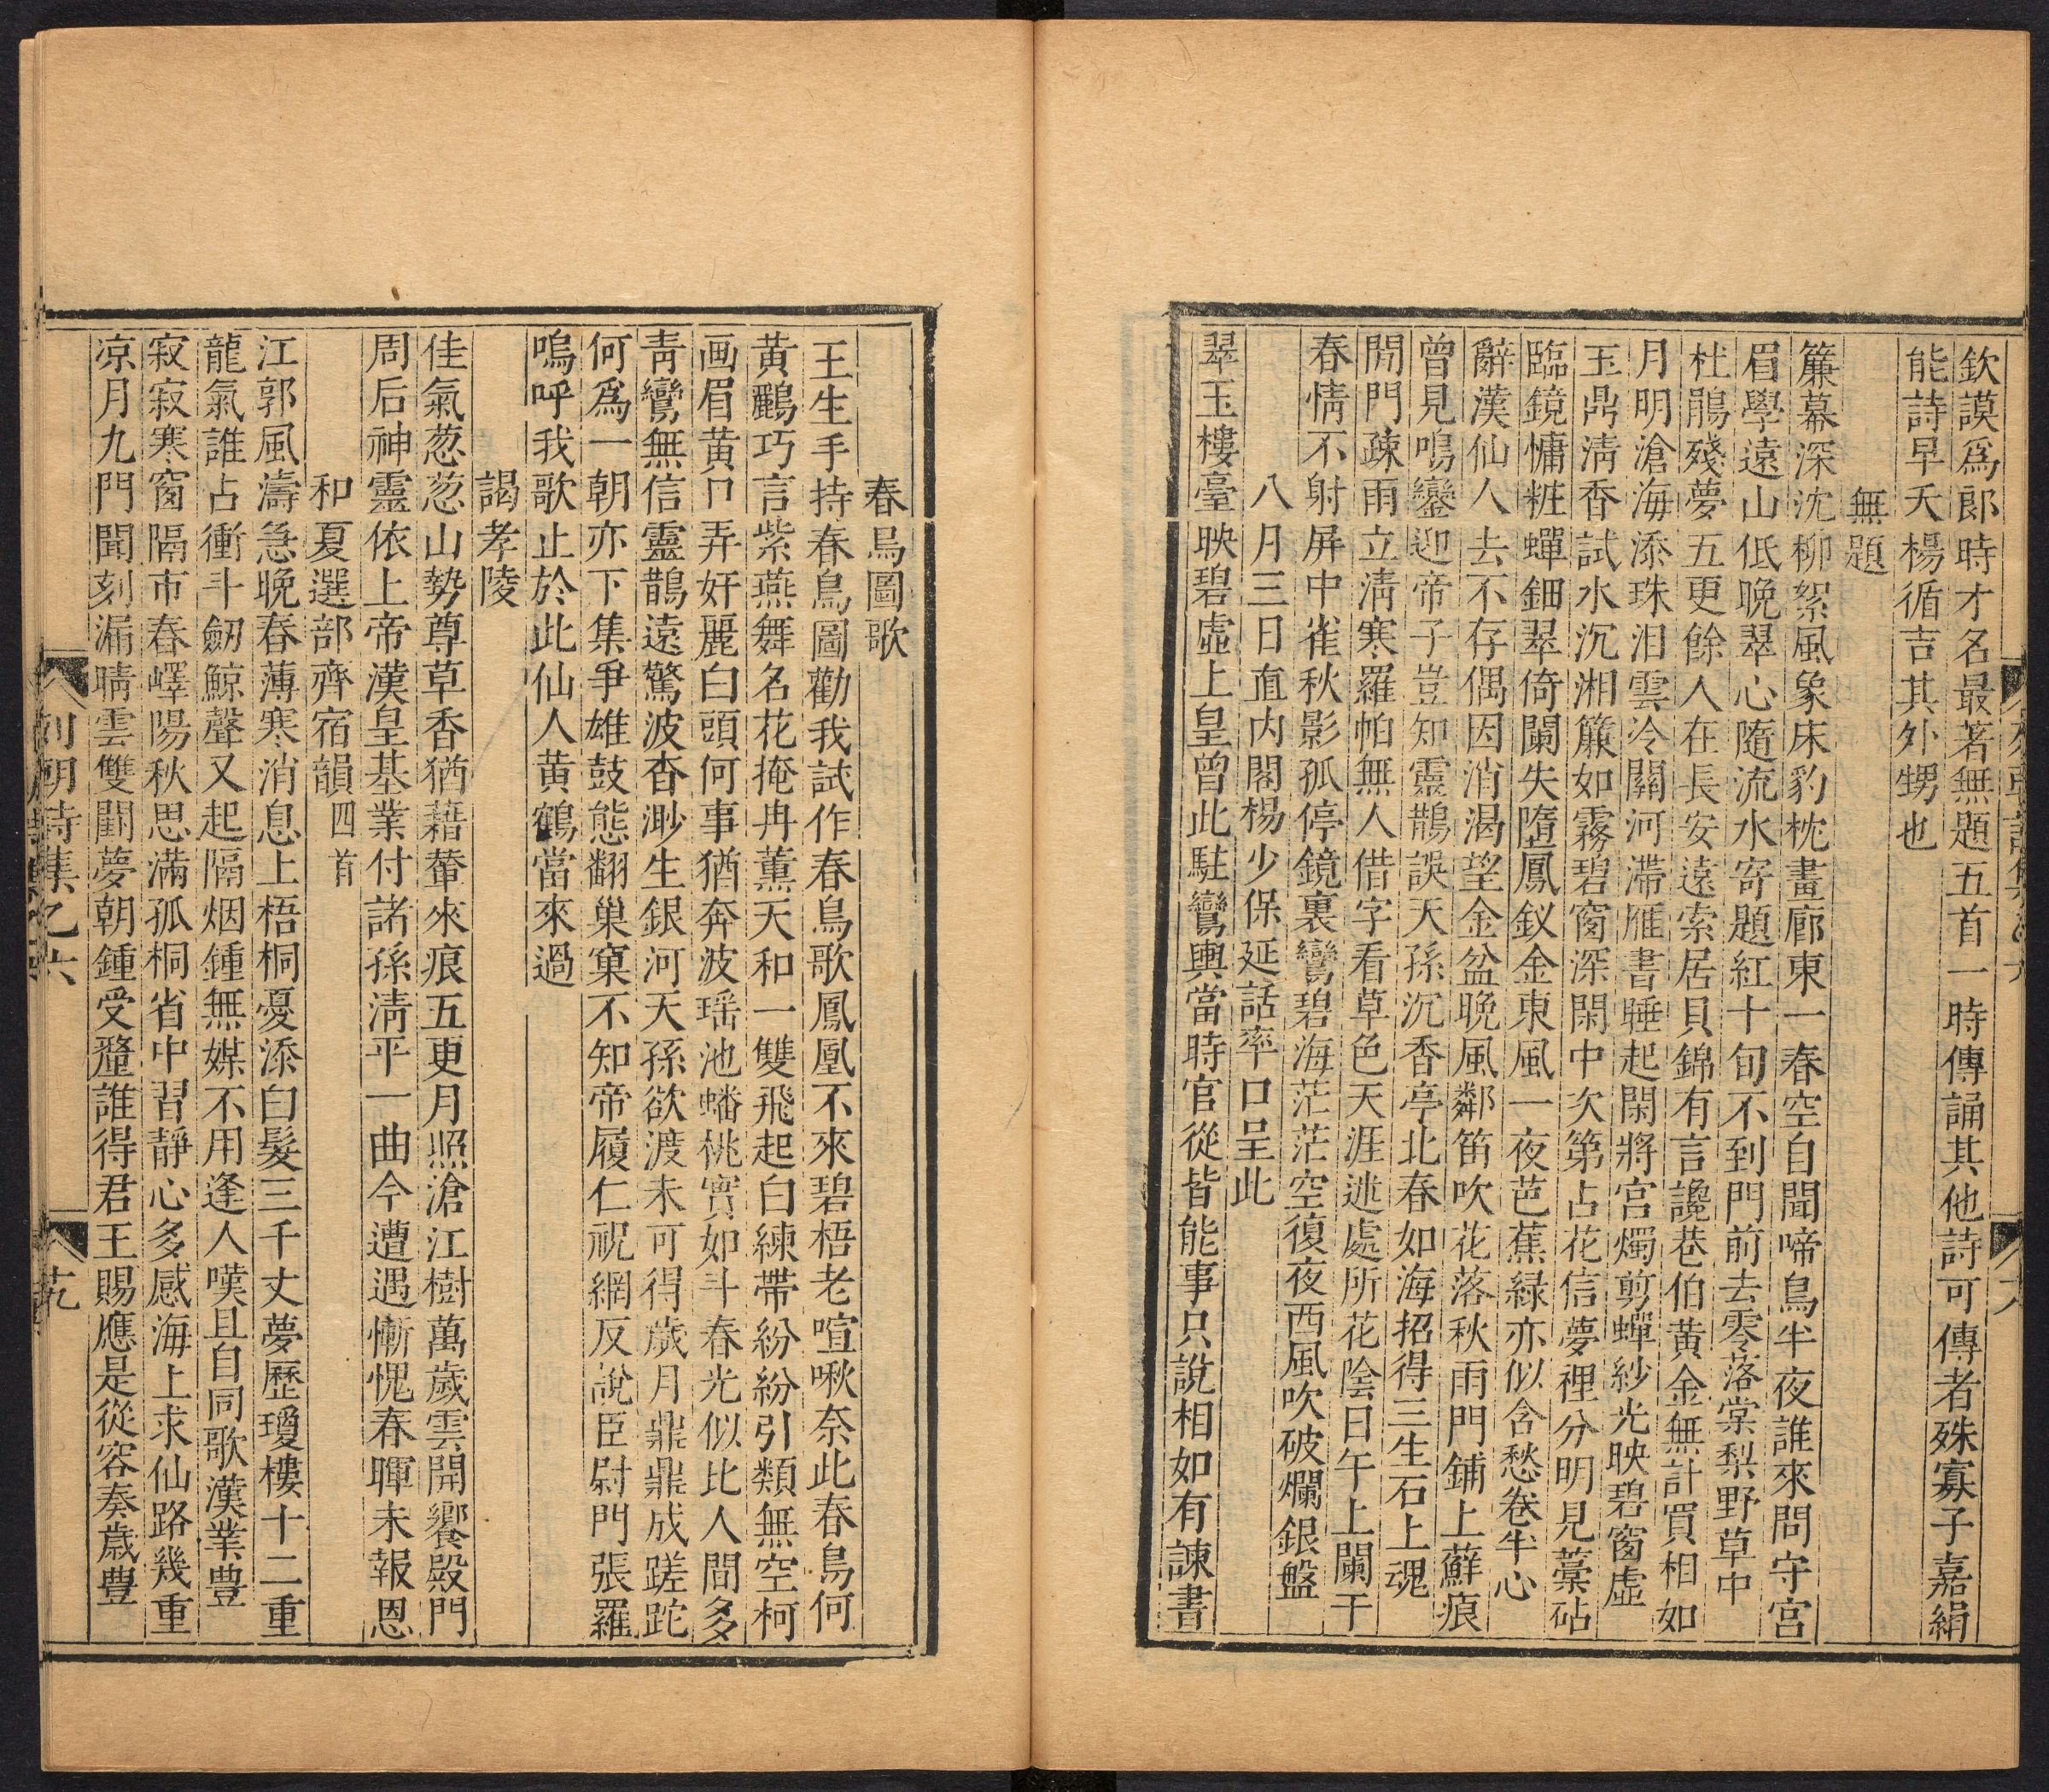 欽謨爲郎時才名最著無題五首一時傳誦其他詩可傳者殊寡子嘉絹
能詩早夭楊循吉其外甥也
無題
簾幕深沈柳絮風象床豹枕畫廊東一春空自聞啼鳥半夜誰來問守宮
眉學遠山低晚翠心隨流水寄題紅十旬不到門前去零落棠梨野草中
杜鵑殘夢五更餘人在長安遠索居貝錦有言讒巷伯黃金無計買相如
月明滄海添珠泪雲冷關河滯雁書睡起閑將宮燭剪蟬紗光映碧窗虛
玉鼎清香試水沉湘簾如霧碧窗深閑中次第占花信夢裡分明見藁砧
臨鏡慵粧蟬鈿翠倚闌失墮鳳釵金東風一夜芭蕉緑亦似含愁卷半心
辭漢仙人去不存偶因消渴望金盆晚風鄰笛吹花落秋雨門鋪上蘚痕
曾見鳴鑾迎帝子豈知靈鵲誤天孫沉香亭北春如海招得三生石上魂
閉門疎雨立清寒羅帕無人借字看草色天涯迷處所花陰日午上闌干
春情不射屏中雀秋影孤停鏡裏鸞碧海茫茫空復夜西風吹破爛銀盤
八月三日直内閣楊少保延話率口呈此
翠玉樓臺映碧虛上皇曾此駐鸞輿當時官從皆能事只說相如有諫書
春鳥圖歌
王生手持春鳥圖勸我試作春鳥歌鳳凰不來碧梧老喧啾奈此春鳥何
黃鸝巧言紫燕舞名花掩冉薰天和一雙飛起白練帶紛紛引類無空柯
画眉黃口弄奸麗白頭何事猶奔波瑶池蟠桃實如斗春光似比人間多
靑鸞無信靈鵲遠驚波杳渺生銀河天孫欲渡未可得歲月鼎鼎成蹉跎
何爲一朝亦下集爭雄鼓態翻巢窠不知帝履仁祝網反說臣尉門張羅
嗚呼我歌止於此仙人黃鶴當來過
謁孝陵
佳氣葱葱山勢尊草香猶藉輦來痕五更月照滄江樹萬歲雲開饗殿門
周后神靈依上帝漢皇基業付諸孫淸平一曲今遭遇慚愧春暉未報恩
和夏選部齊宿韻四首
江郭風濤急晚春薄寒消息上梧桐憂添白髮三千丈夢歷瓊樓十二重
龍氣誰占衝斗劒鯨聲又起隔烟鍾無媒不用逢人嘆且自同歌漢業豊
寂寂寒窗隔市春嶧陽秋思滿孤桐省中習靜心多感海上求仙路幾重
凉月九門聞刻漏晴雲雙闕夢朝鍾受釐誰得君王賜應是從容奏歲豊
列朝詩集乙六